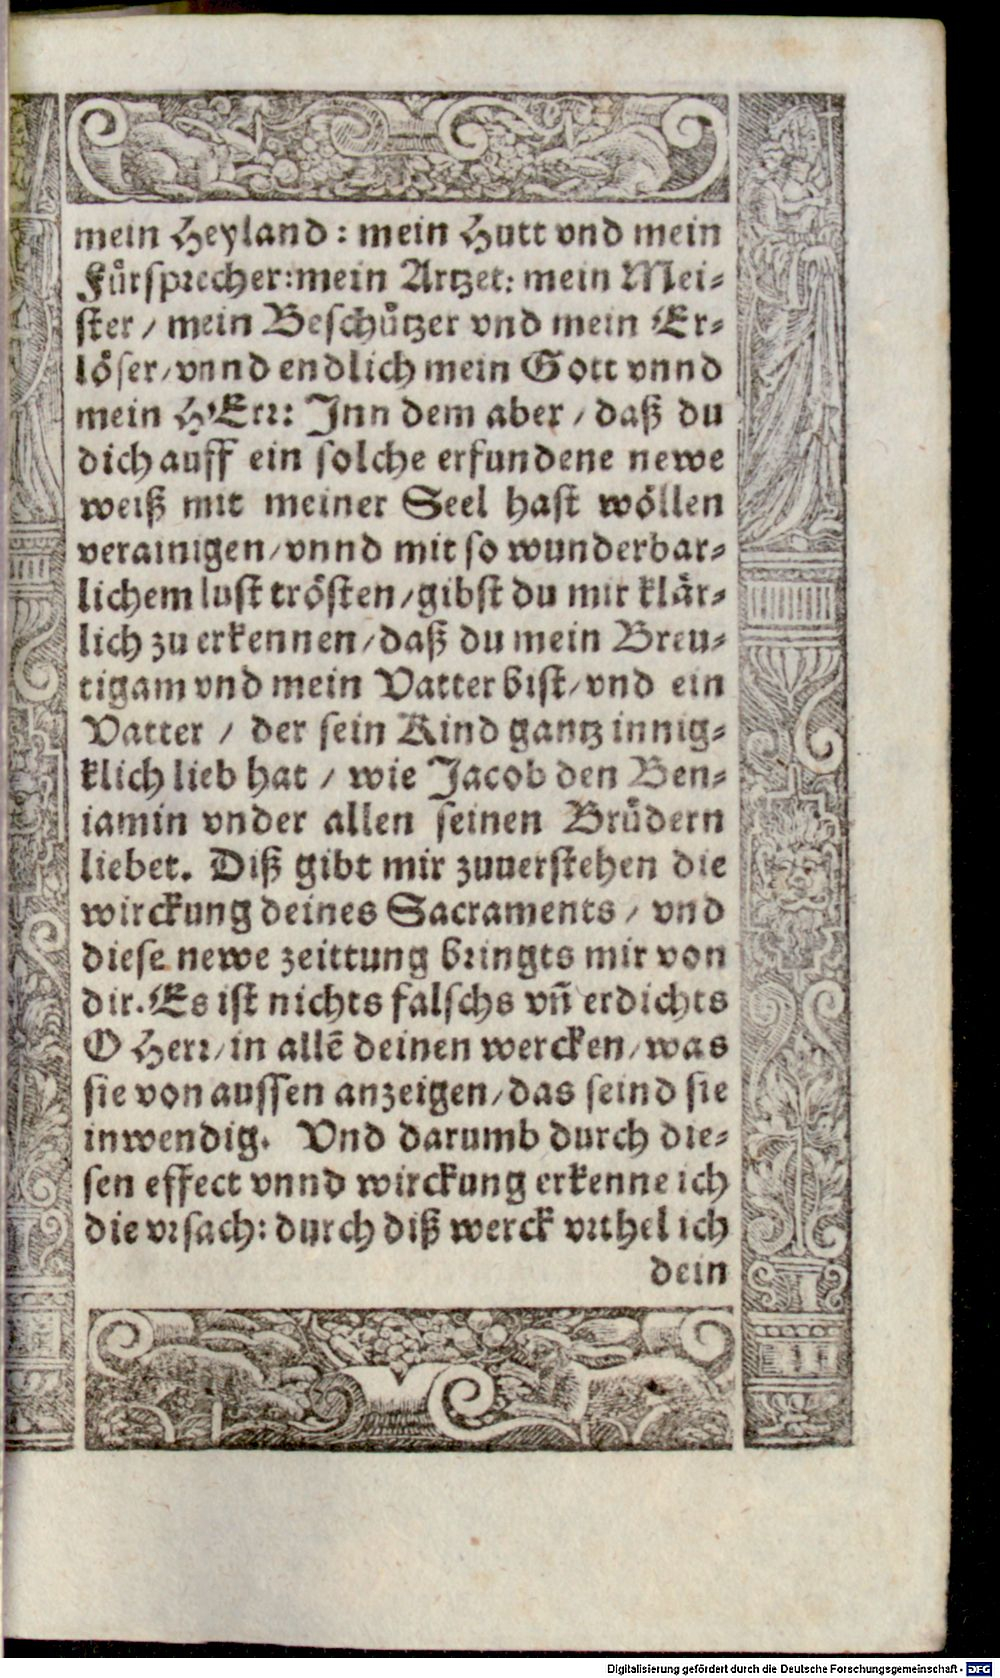 mein Heyland: mein Hutt vnd mein
Fuͤrsprecher: mein Artzet: mein Mei-
ster / mein Beschuͤtzer vnd mein Er-
loͤser / vnnd endlich mein Gott vnnd
mein HErr: Jnn dem aber / daß du
dich auff ein solche erfundene newe
weiß mit meiner Seel hast woͤllen
verainigen / vnnd mit so wunderbar-
lichem lust troͤsten / gibst du mir klaͤr-
lich zu erkennen / daß du mein Breu-
tigam vnd mein Vatter bist / vnd ein
Vatter / der sein Kind gantz innig-
klich lieb hat / wie Jacob den Ben-
iamin vnder allen seinen Bruͤdern
liebet. Diß gibt mir zuuerstehen die
wirckung deines Sacraments / vnd
diese newe zeittung bringts mir von
dir. Es ist nichts falschs vñ erdichts
O Herr / in allē deinen wercken / was
sie von aussen anzeigen / das seind sie
inwendig. Vnd darumb durch die-
sen effect vnnd wirckung erkenne ich
die vrsach: durch diß werck vrthel ich
dein
Digitalisierung gefördert durch die Deutsche Forschungsgemeinschaft - DFG